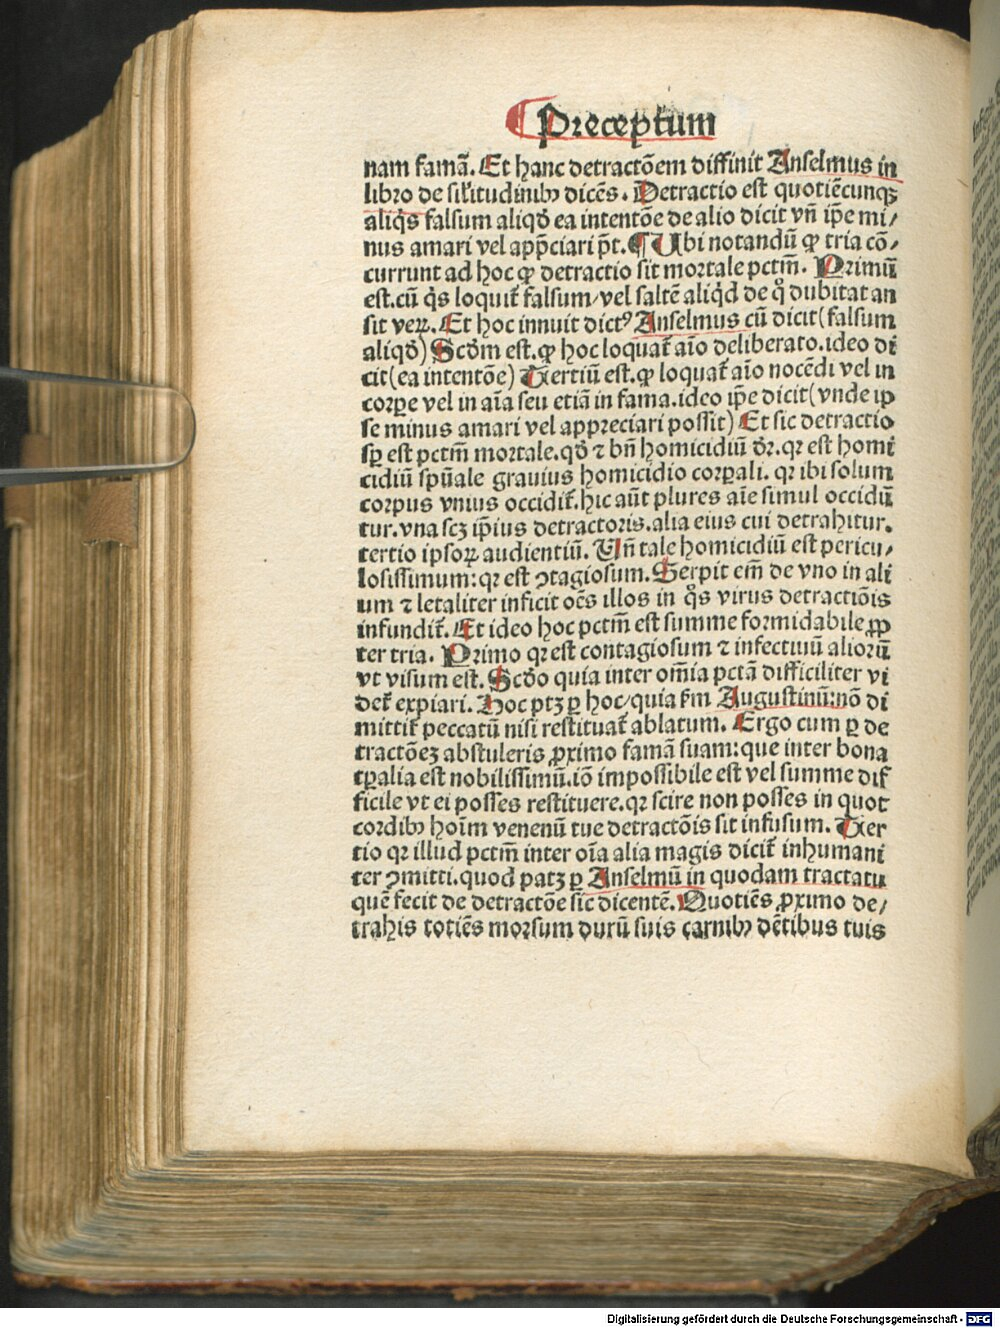 Preceptum
nam famã. Et hanc detractõem diffinit Anselmus in
libro de sil'itudinibꝰ dicẽs. Detractio est quotiẽcunqꝫ
aliq̃s falsum aliqđ ea intentõe de alio dicit vñ ip̃e mi/
nus amari vel app̃ciari p̃t. ¶ Ubi notandũ ꝙ tria cõ/
currunt ad hoc ꝙ detractio sit mortale pctm̃. Primũ
est. cũ q̃s loquit̃ falsum/vel saltẽ aliq̃d de q̊ dubitat an
sit veꝝ. Et hoc innuit dictꝰ Anselmus cũ dicit (falsum
aliqđ) Scđm est. ꝙ hoc loquat̃ aĩo deliberato. ideo di
cit (ea intentõe) Tertiũ est. ꝙ loquat̃ aĩo nocẽdi vel in
corꝑe vel in aĩa seu etiã in fama. ideo ip̃e dicit (vnde ip
se minus amari vel appreciari possit) Et sic detractio
sꝑ est pctm̃ mortale. qđ ⁊ bñ homicidiũ đr. qꝛ est homi
cidiũ sp̃uale grauius homicidio corꝑali. qꝛ ibi solum
corpus vnius occidit̃. hic aũt plures aĩe simul occidũ
tur. vna scꝫ ip̃ius detractoris. alia eius cui detrahitur.
tertio ipsoꝝ audientiũ. Uñ tale homicidiũ est pericu/
losissimum: qꝛ est ꝯtagiosum. Serpit em̃ de vno in ali
um ⁊ letaliter inficit oẽs illos in q̊s virus detractiõis
infundit̃. Et ideo hoc pctm̃ est summe formidabile ꝓp
ter tria. Primo qꝛ est contagiosum ⁊ infectiuũ alioꝛũ
vt visum est. Scđo quia inter om̃ia pctã difficiliter vi
det̃ expiari. Hoc ptꝫ ꝑ hoc/quia fm̃ Augustinũ: nõ di
mittit̃ peccatũ nisi restituat̃ ablatum. Ergo cum ꝑ de
tractõeꝫ abstuleris ꝓximo famã suam: que inter bona
tꝑalia est nobilissimũ. iõ impossibile est vel summe dif
ficile vt ei posses restituere. qꝛ scire non posses in quot
cordibꝰ hoĩm venenũ tue detractõis sit infusum. Ter
tio qꝛ illud pctm̃ inter oĩa alia magis dicit̃ inhumani
ter ꝯmitti. quod patꝫ ꝑ Anselmũ in quodam tractatu
quẽ fecit de detractõe sic dicentẽ. Quotiẽs ꝓximo de/
trahis totiẽs morsum durũ suis carnibꝰ dẽtibus tuis
Digitalisierung gefördert durch die Deutsche Forschungsgemeinschaft - DFG